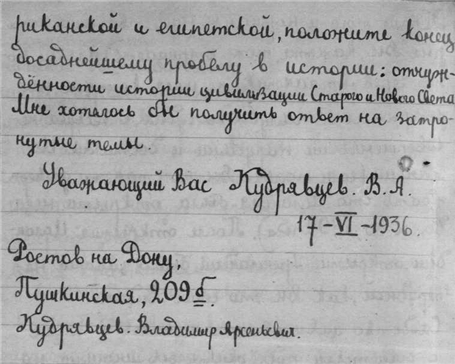 риканской и египетской, положите конец
досаднейшему пробелу в истории: отчуж-
дённости истории цивилизации Старого и Нового Света
Мне хотелось бы получить ответ на затро-
нутые темы.
Уважающий Вас Кудрявцев. В.А.
17-VI-1936.
Ростов на Дону,
Пушкинская, 209 б.
Кудрявцев. Владимир Арсеньевич.